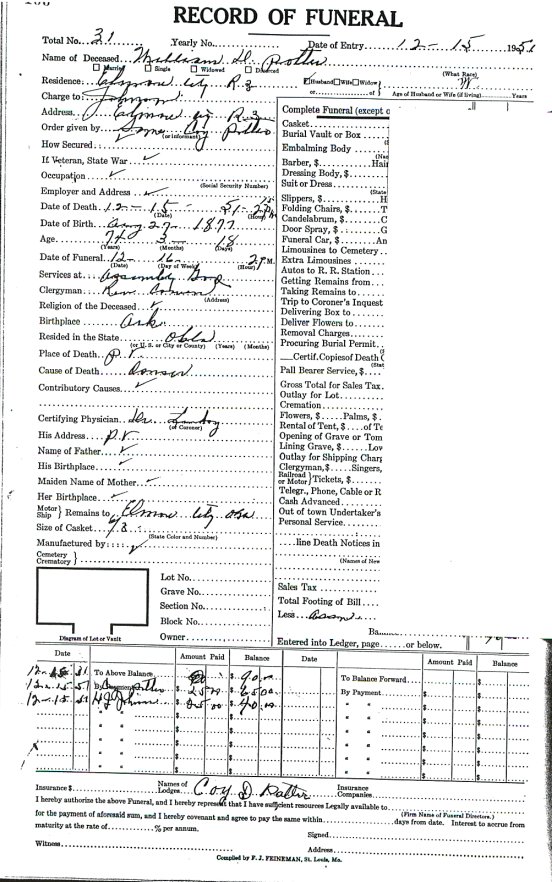 RECORD OF FUNERAL
Total No. 31 Yearly No. Date of Entry 12-15 1951
Name of Deceased William D. Potter
Married Single Widowed Divorced (What Race)
Residence City R. 2 Husband Wife Widow W.
or of Age of Husband or Wife (if living) Years
Charge to Johnson
Address City R. 2
Order given by Coy Potter
(or informant)
How Secured
If Veteran, State War ✓
Occupation ✓
(Social Security Number)
Employer and Address ✓
Date of Death 12-15-51-2 P.M.
(Date) (Hour)
Date of Birth Aug 27-1877
Age 74 3 18
(Years) (Months) (Days)
Date of Funeral 12-16- 2 P.M.
(Date) (Day of Week) (Hour)
Services at Assembly God
Clergyman Rev.
(Address)
Religion of the Deceased ✓
Birthplace Ark
Resided in the State Okla
(or U. S. or City or County) (Years) (Months)
Place of Death P.V.
Cause of Death Cancer
Contributory Causes ✓
Certifying Physician Dr.
(of Coroner)
His Address P.V.
Name of Father ✓
His Birthplace ✓
Maiden Name of Mother ✓
Her Birthplace ✓
Motor Ship } Remains to Elmore City Okla
Size of Casket 6/3
(State Color and Number)
Manufactured by ✓
Cemetery
Crematory }
Complete Funeral (except o
Casket
Burial Vault or Box
Embalming Body
Barber, $ Hair
Dressing Body, $
Suit or Dress
(State
Slippers, $ H
Folding Chairs, $ T
Candelabrum, $ C
Door Spray, $ G
Funeral Car, $ An
Limousines to Cemetery
Extra Limousines
Autos to R. R. Station
Getting Remains from
Taking Remains to
Trip to Coroner's Inquest
Delivering Box to
Deliver Flowers to
Removal Charges
Procuring Burial Permit
Certif. Copies of Death (
(Stat
Pall Bearer Service, $
Gross Total for Sales Tax
Outlay for Lot
Cremation
Flowers, $ Palms, $
Rental of Tent, $ of Te
Opening of Grave or Tom
Lining Grave, $ Lov
Outlay for Shipping Charg
Clergyman, $ Singers,
Railroad or Motor } Tickets, $
Telegr., Phone, Cable or R
Cash Advanced
Out of town Undertaker's
Personal Service
line Death Notices in
(Names of New
Sales Tax
Total Footing of Bill
Less
Ba
Entered into Ledger, page or below.
Lot No.
Grave No.
Section No.
Block No.
Owner
Diagram of Lot or Vault
Date Amount Paid Balance Date Amount Paid Balance
12-15 51 To Above Balance $ 90 $ 90.00 To Balance Forward $ $
12-15-51 By Payment $ 25.00 $ 65.00 By Payment $ $
12-15 51 $ 25.00 $ 40.00 " " $ $
Insurance $ Names of Lodges Coy D. Potter Insurance Companies
I hereby authorize the above Funeral, and I hereby represent that I have sufficient resources Legally available to
(Firm Name of Funeral Directors.)
for the payment of aforesaid sum, and I hereby covenant and agree to pay the same within days from date. Interest to accrue from
maturity at the rate of % per annum. Signed
Witness Address
Compiled by F. J. FEINEMAN, St. Louis, Mo.